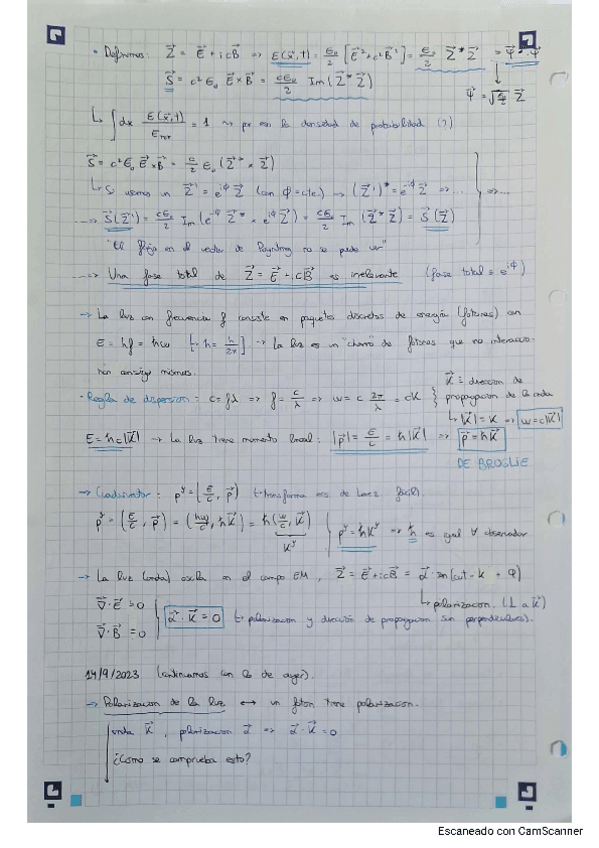 • Definimos: Z⃗ = E⃗ + icB⃗ => E(x⃗,t) = ε₀/2 [E⃗² + c²B⃗²] = ε₀/2 Z⃗* Z⃗ = Ψ⃗* · Ψ⃗
S⃗ = c²ε₀ E⃗ × B⃗ = cε₀/2 Im(Z⃗* × Z⃗)
Ψ⃗ = √(ε₀/2) Z⃗
↳ ∫dx E(x⃗,t)/E = 1 → por eso la densidad de probabilidad (?)
S⃗ = c²ε₀ E⃗ × B⃗ = c/2 ε₀ (Z⃗* × Z⃗)
↳ Si usamos un Z⃗' = e^{iφ} Z⃗ (con φ = cte.) → (Z⃗')* = e^{-iφ} Z⃗ => ... => ...
...→ S⃗(Z⃗') = cε₀/2 Im(e^{-iφ} Z⃗* × e^{iφ} Z⃗) = cε₀/2 Im(Z⃗* Z⃗) = S⃗(Z⃗)
"El flujo en el vector de Poynting no se puede ver"
...→ Una fase total de Z⃗ = E⃗ + icB⃗ es irrelevante (fase total = e^{iφ})
→ La luz con frecuencia f consiste en paquetes discretos de energía (fotones) con
E = hf = ħω [ħ = h/2π] → La luz es un "chorro" de fotones que no interaccio-
nan consigo mismos.
• Regla de dispersión: c = fλ => f = c/λ => ω = c 2π/λ = cK } K⃗ = dirección de
propagación de la onda
↳ |K⃗| = K => ω = c|K⃗|
E = ħc|K⃗| → La luz tiene momento lineal: |p⃗| = E/c = ħ|K⃗| => p⃗ = ħK⃗
DE BROGLIE
→ Cuadrivector: p^γ = (E/c, p⃗)
p^γ = (E/c, p⃗) = (ħω/c, ħK⃗) = ħ(ω/c, K⃗) } p^γ = ħK^γ => ħ es igual ∀ observador
K^γ
→ La luz (onda) oscila en el campo EM, Z⃗ = E⃗ + icB⃗ = α⃗ · sin(ωt - k + φ)
↳ polarización (⊥ a K⃗)
∇⃗ · E⃗ = 0
α⃗ · K⃗ = 0 polarización y dirección de propagación son perpendiculares.
∇⃗ · B⃗ = 0
14/9/2023 (continuamos con lo de ayer).
→ Polarización de la luz ↔ un fotón tiene polarización.
onda K⃗, polarización α⃗ => α⃗ · K⃗ = 0
¿Cómo se comprueba esto?
Escaneado con CamScanner